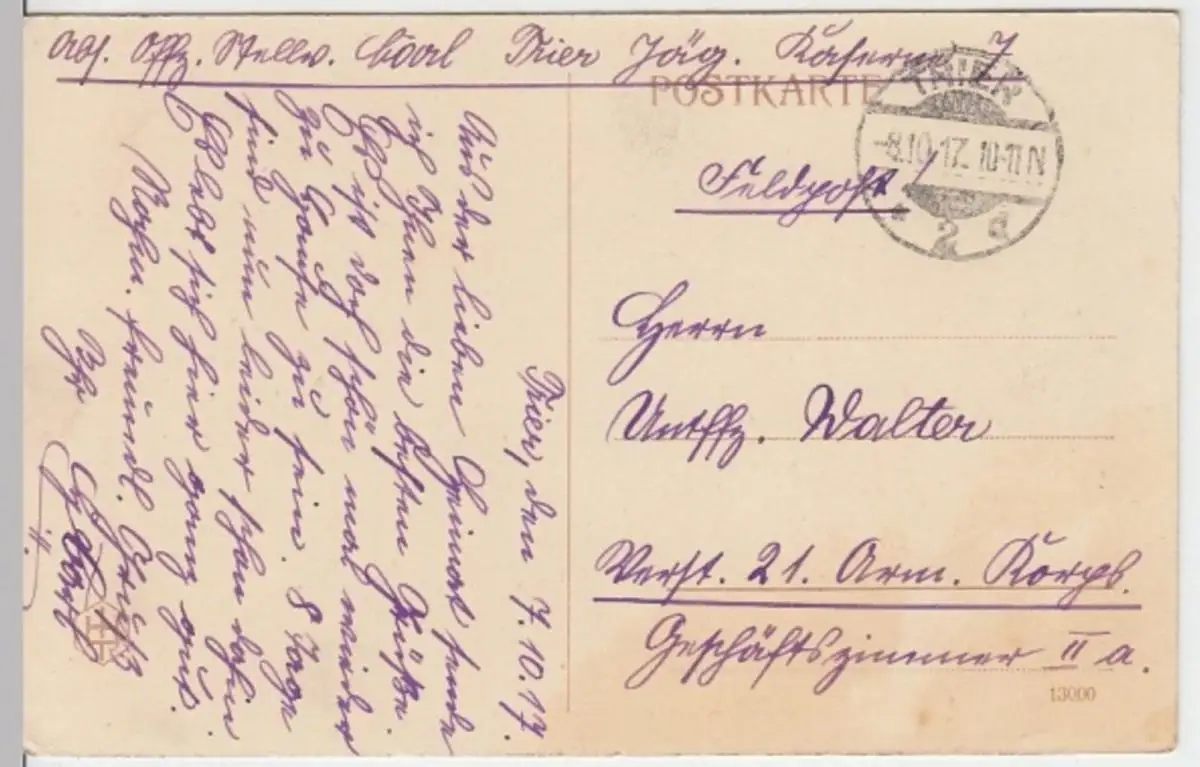 Abs. Offz. Stellv. Trier Jäg. Kaserne 7
POSTKARTE
TRIER
-8.10.17. 10-11 N
* 2 d
Feldpost!
Herrn
Untffz. Walter
Verst. 21. Arm. Korps.
Geschäftszimmer II a.
13000
Trier, den 7.10.17.
Aus der lieben Heimat sende
ich Ihnen die besten Grüße.
Es ist doch schön mal wieder
zu Hause zu sein. 8 Tage
sind nun leider schon dahin
Es lebt sich hier ganz gut.
Nochm. freundl. Gruß
Ihr